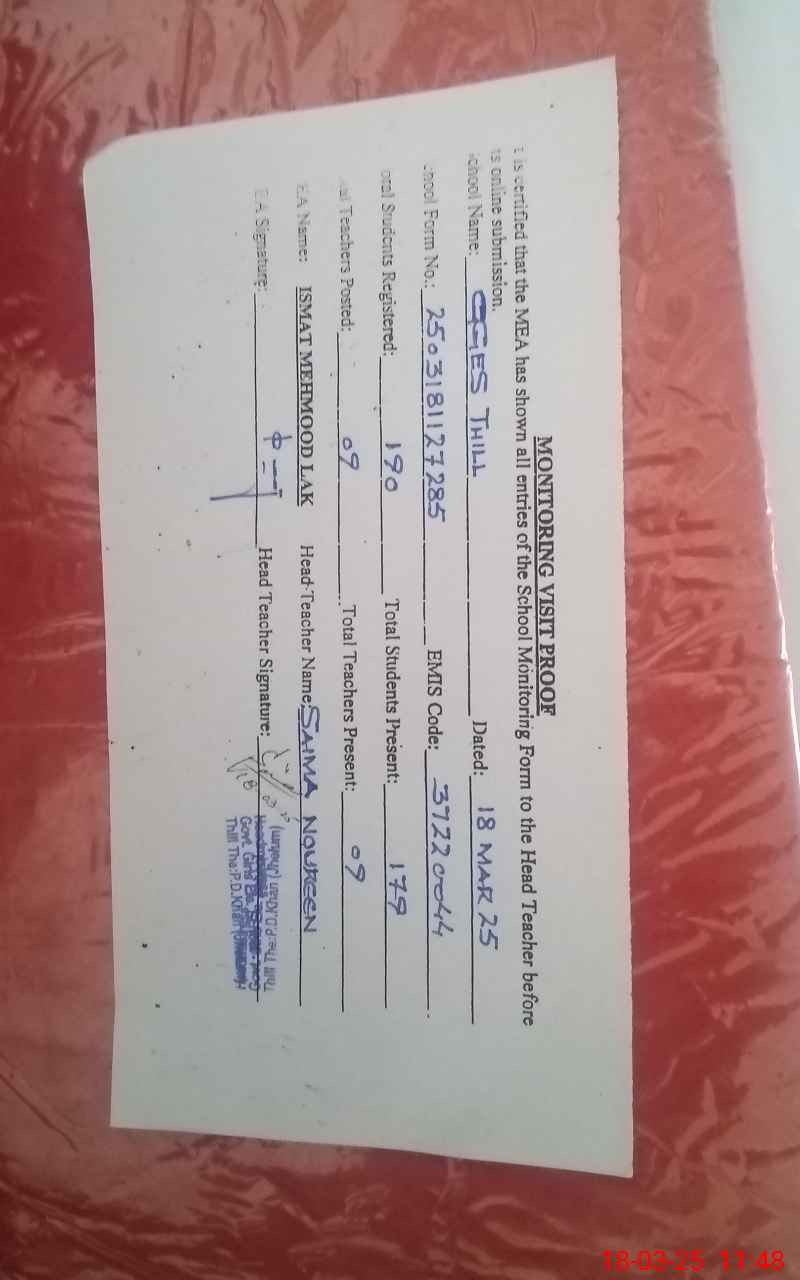 MONITORING VISIT PROOF
t is certified that the MEA has shown all entries of the School Monitoring Form to the Head Teacher before
ts online submission.
chool Name: GGES THILL Dated: 18 MAR 25
hool Form No.: 2503181127285 EMIS Code: 37220044
otal Students Registered: 190 Total Students Present: 179
al Teachers Posted: 09 Total Teachers Present: 09
EA Name: ISMAT MEHMOOD LAK Head Teacher Name: SAIMA NOUREEN
EA Signature: Head Teacher Signature:
Govt. Girls
Thill The: P.D.Khan
18-03-25 11:48